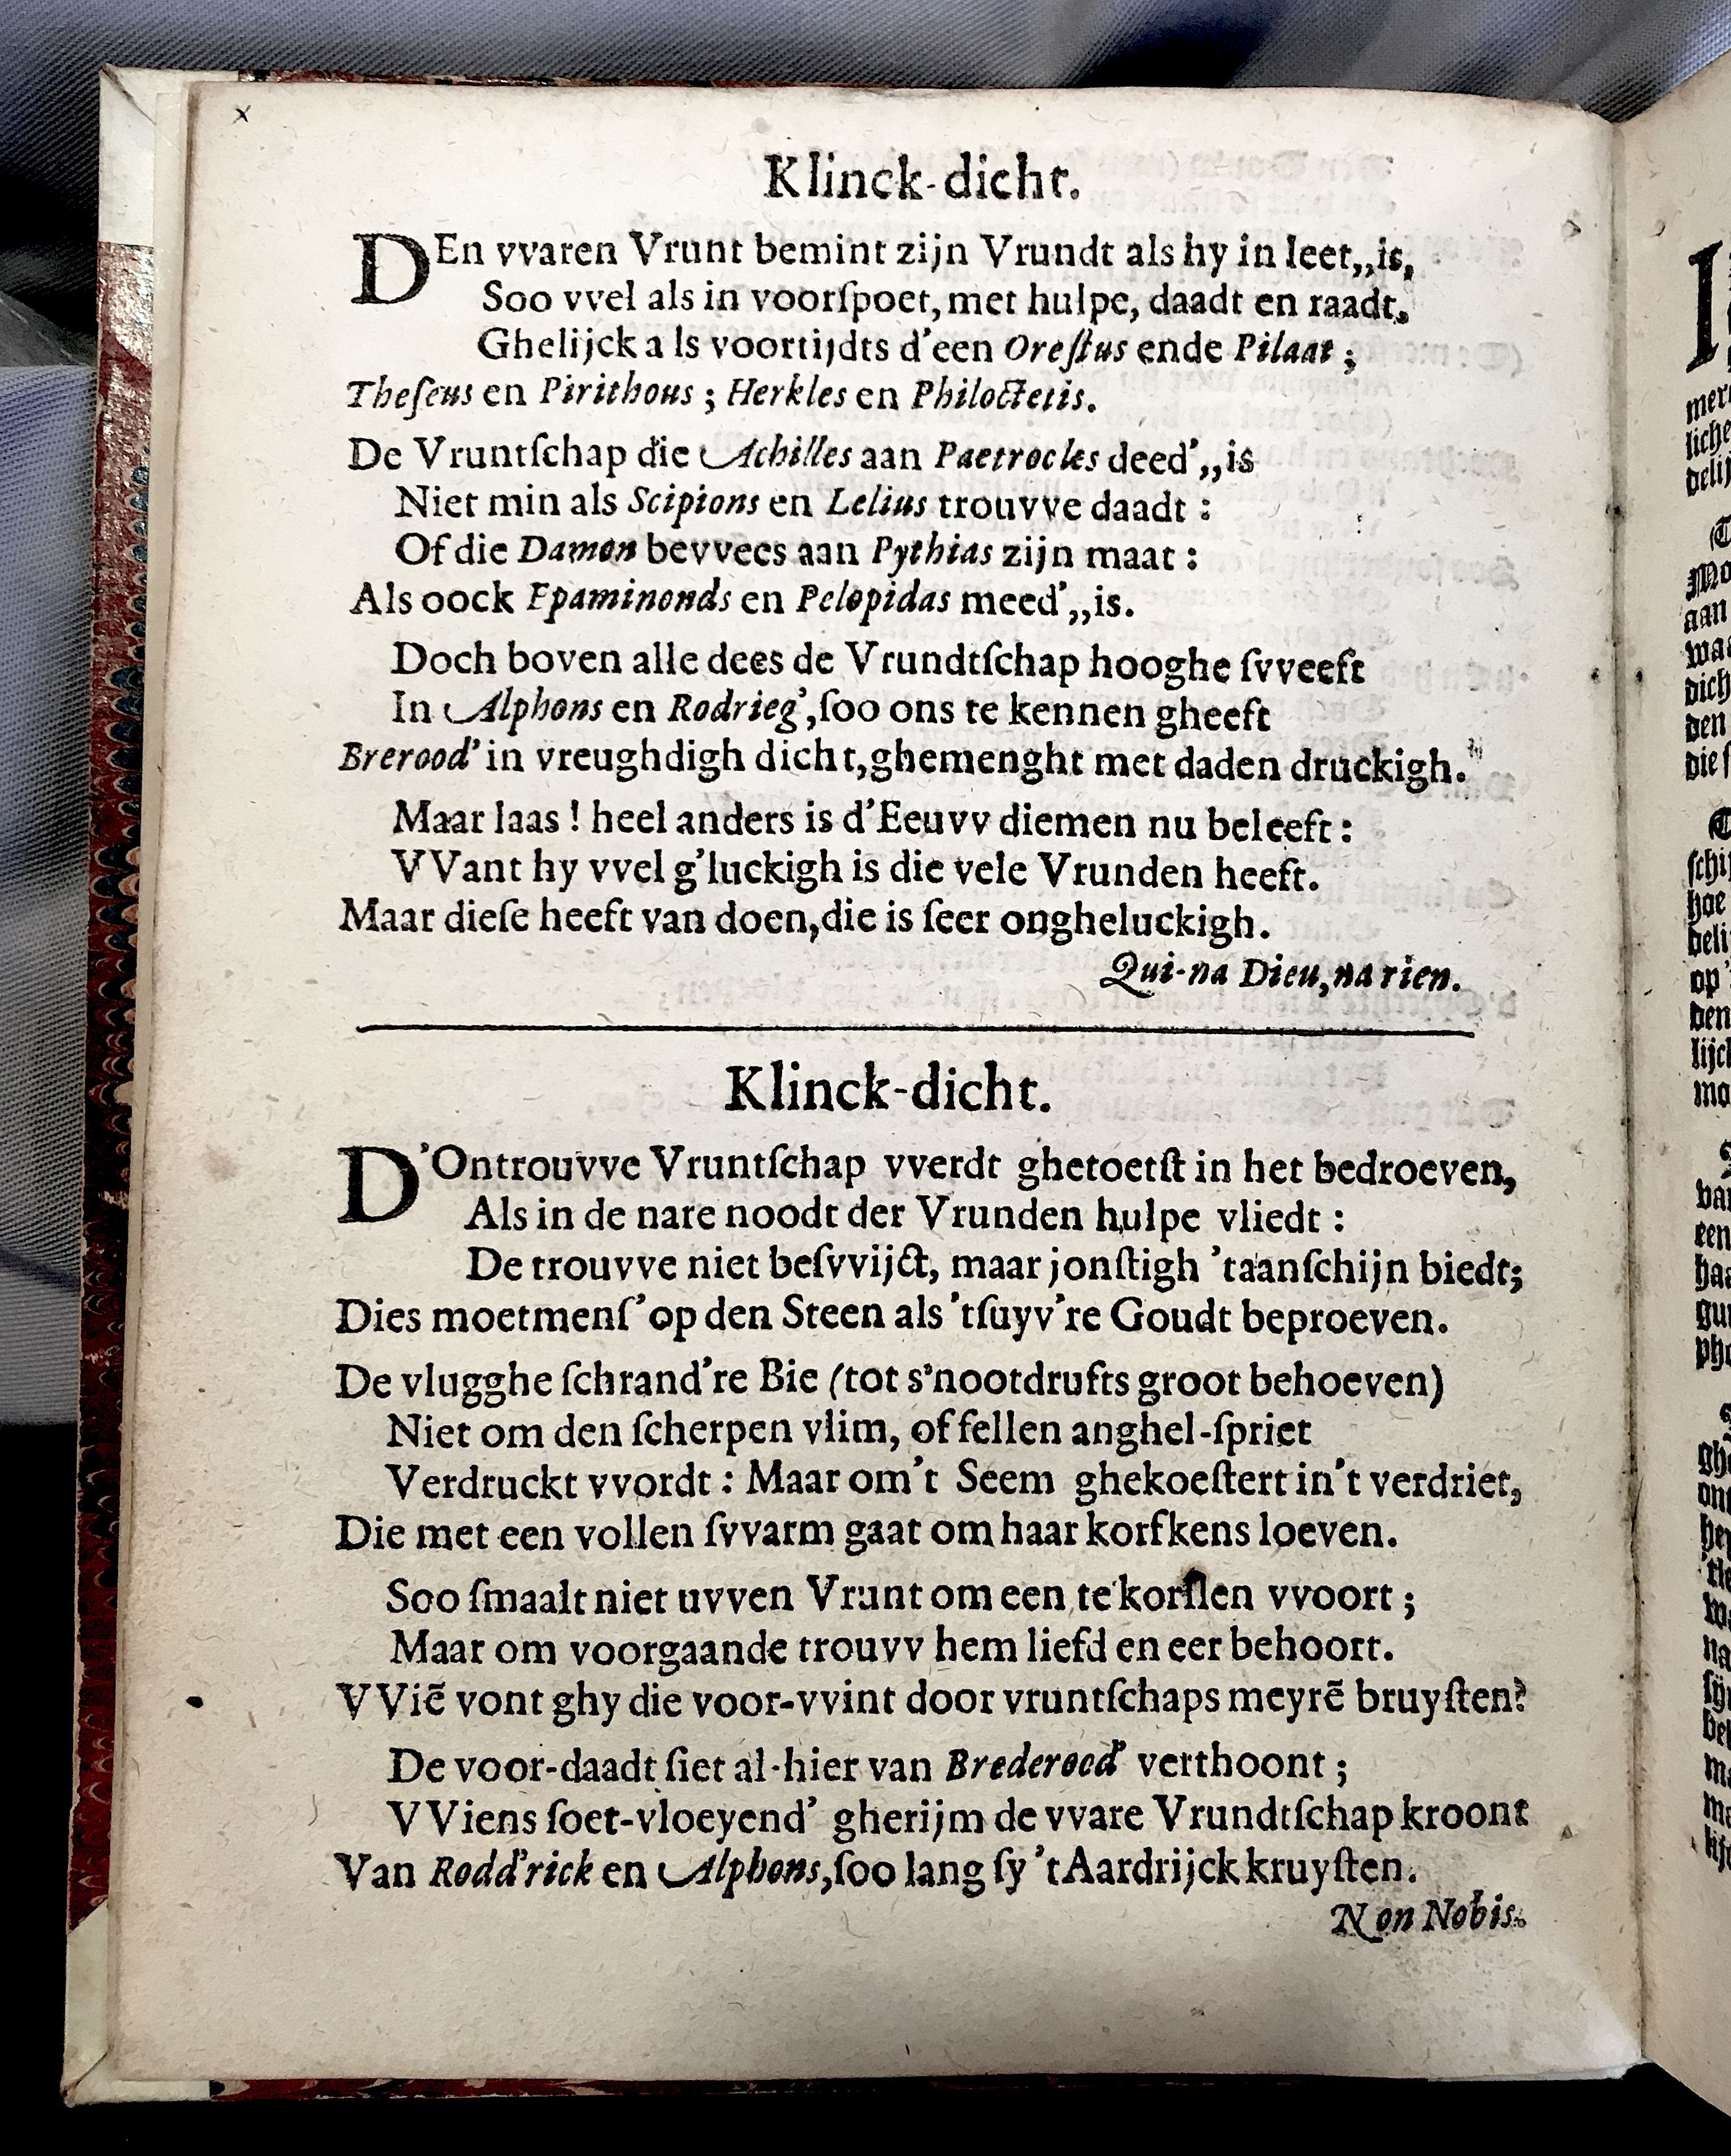 x
Klinck-dicht.
DEn vvaren Vrunt bemint zijn Vrundt als hy in leet,,is,
Soo vvel als in voorſpoet, met hulpe, daadt en raadt,
Ghelijck als voortijdts d'een Oreſtus ende Pilaat;
Theſeus en Pirithous; Herkles en Philoctetis.
De Vruntſchap die Achilles aan Paetrocles deed',,is
Niet min als Scipions en Lelius trouvve daadt:
Of die Damon bevvees aan Pythias zijn maat:
Als oock Epaminonds en Pelopidas meed',,is.
Doch boven alle dees de Vrundtſchap hooghe ſvveeft
In Alphons en Rodrieg', ſoo ons te kennen gheeft
Brerood' in vreughdigh dicht, ghemenght met daden druckigh.
Maar laas! heel anders is d'Eeuvv diemen nu beleeft:
VVant hy vvel g'luckigh is die vele Vrunden heeft.
Maar dieſe heeft van doen, die is ſeer ongheluckigh.
Qui-na Dieu, na rien.
Klinck-dicht.
D'Ontrouvve Vruntſchap vverdt ghetoetſt in het bedroeven,
Als in de nare noodt der Vrunden hulpe vliedt:
De trouvve niet beſvvijct, maar jonſtigh 'taanſchijn biedt;
Dies moetmenſ' op den Steen als 'tſuyv're Goudt beproeven.
De vlugghe ſchrand're Bie (tot s'nootdrufts groot behoeven)
Niet om den ſcherpen vlim, of fellen anghel-ſpriet
Verdruckt vvordt: Maar om't Seem ghekoeſtert in't verdriet,
Die met een vollen ſvvarm gaat om haar korfkens loeven.
Soo ſmaalt niet uvven Vrunt om een te korſlen vvoort;
Maar om voorgaande trouvv hem liefd en eer behoort.
VViē vont ghy die voor-vvint door vruntſchaps meyrē bruyſten?
De voor-daadt ſiet al-hier van Brederood' verthoont;
VViens ſoet-vloeyend' gherijm de vvare Vrundtſchap kroont
Van Rodd'rick en Alphons, ſoo lang ſy 't Aardrijck kruyſten.
Non Nobis.